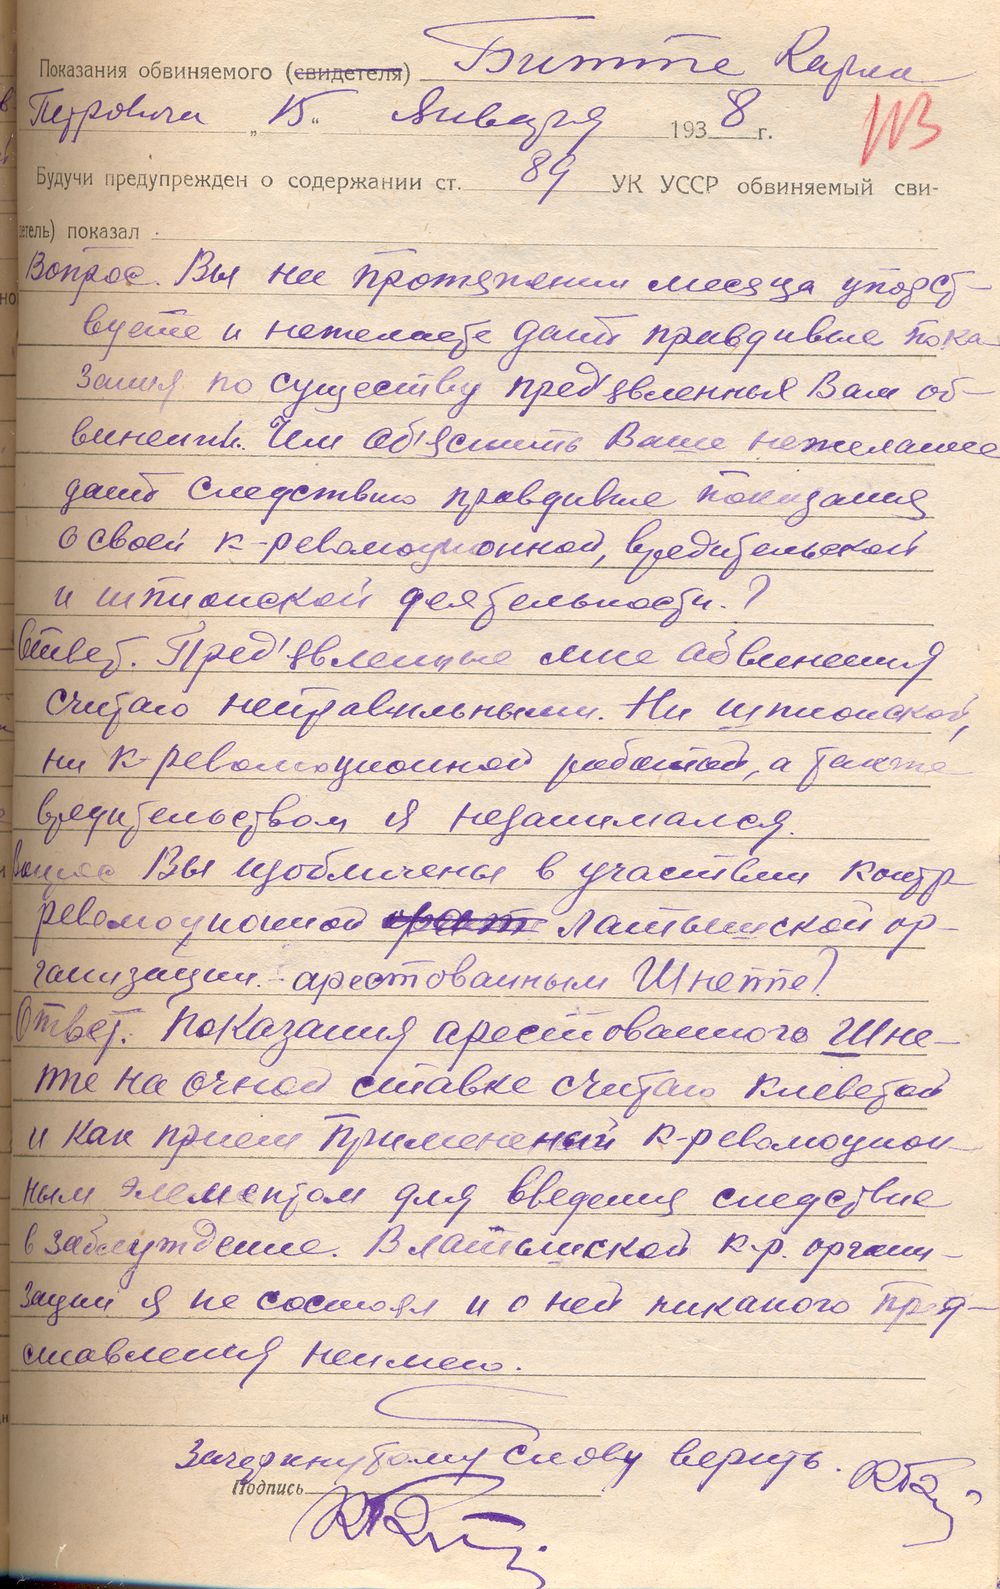 Показания обвиняемого (свидетеля) Битте Карла
Петровича „15“ Января 1938 г.
113
Будучи предупрежден о содержании ст. 89 УК УССР обвиняемый сви-
детель) показал
Вопрос. Вы на протяжении месяца упорст-
вуете и нежелаете дать правдивые пока-
зания по существу пред'явленных Вам об-
винений. Чем об'яснить Ваше нежелание
дать следствию правдивые показания
о своей к-революционной, вредительской
и шпионской деятельности.?
Ответ. Пред'явленные мне обвинения
считаю неправильными. Ни шпионской,
ни к-революционной работой, а также
вредительством я незанимался.
Вопрос Вы изобличены в участии контр
революционной Латышской ор-
ганизации - арестованным Шнепте?
Ответ. Показания арестованного Шне-
пте на очной ставке считаю клеветой
и как прием примененый к-революцион-
ным элементом для введения следствие
в заблуждение. В латышской к.р. органи-
зации я не состоял и о ней никакого пред-
ставления неимею.
Зачеркнутому слову верить.
Подпись